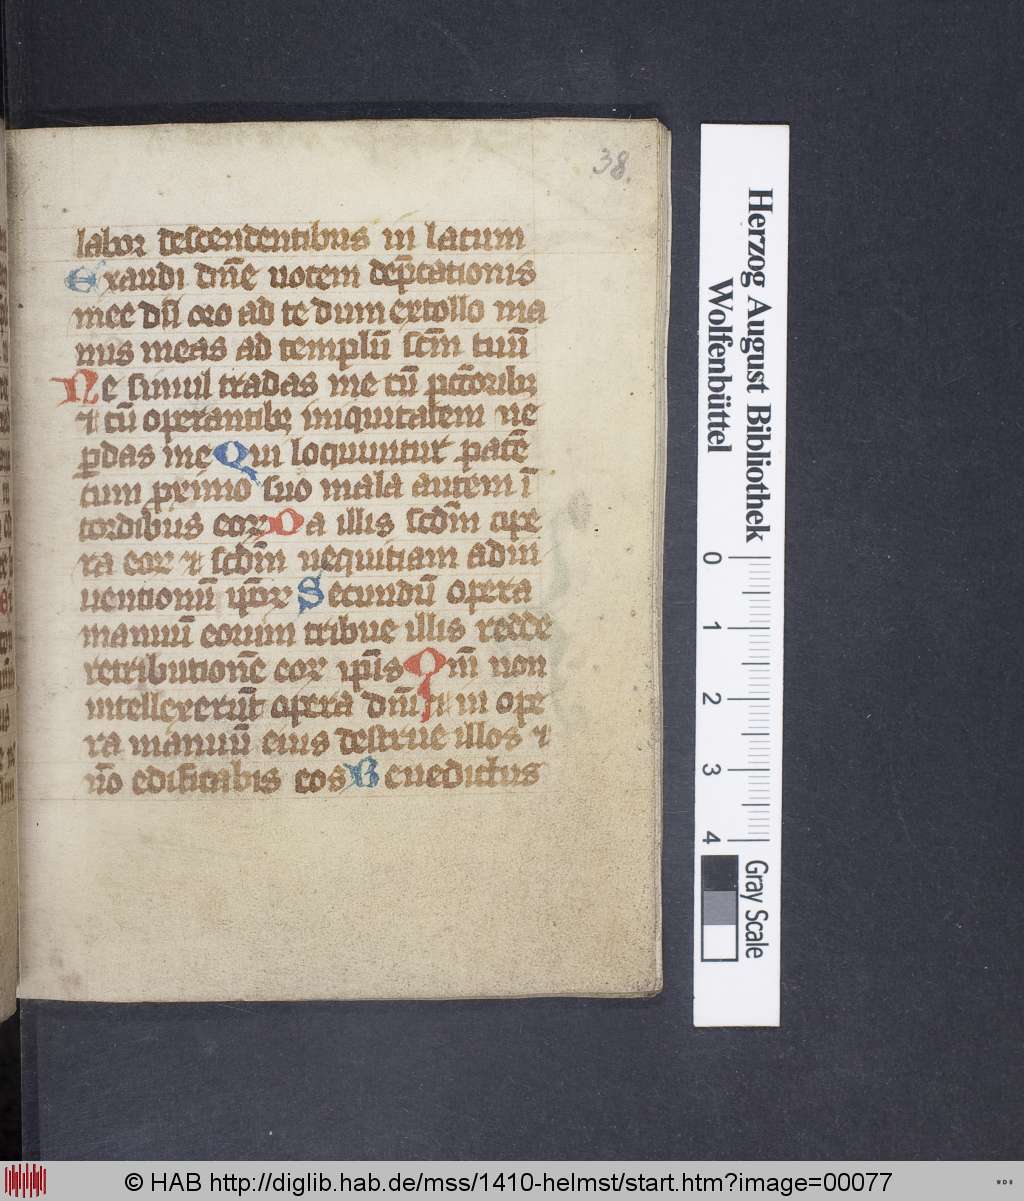 38.
labor descendentibus in lacum
Exaudi dn̄e vocem dep̄cationis
mee dū oro ad te dum extollo ma
nus meas ad templū scm̄ tuū
Ne simul tradas me cū pctōribꝫ
⁊ cū operantibꝫ iniquitatem ne
ꝑdas me Qui loquuntur pacē
cum proximo suo mala autem ī
cordibus eoꝝ Da illis scdm̄ ope
ra eoꝝ ⁊ scdm̄ nequitiam adin
ventionū ip̄oꝝ Secundū opera
manuū eorum tribue illis redde
retributionē eoꝝ ip̄is Qm̄ non
intellexerūt opera dn̄i ⁊ in ope
ra manuū eius destrue illos ⁊
nō edificabis eos Benedictus
Herzog August Bibliothek
Wolfenbüttel
0 1 2 3 4
Gray Scale
© HAB http://diglib.hab.de/mss/1410-helmst/start.htm?image=00077